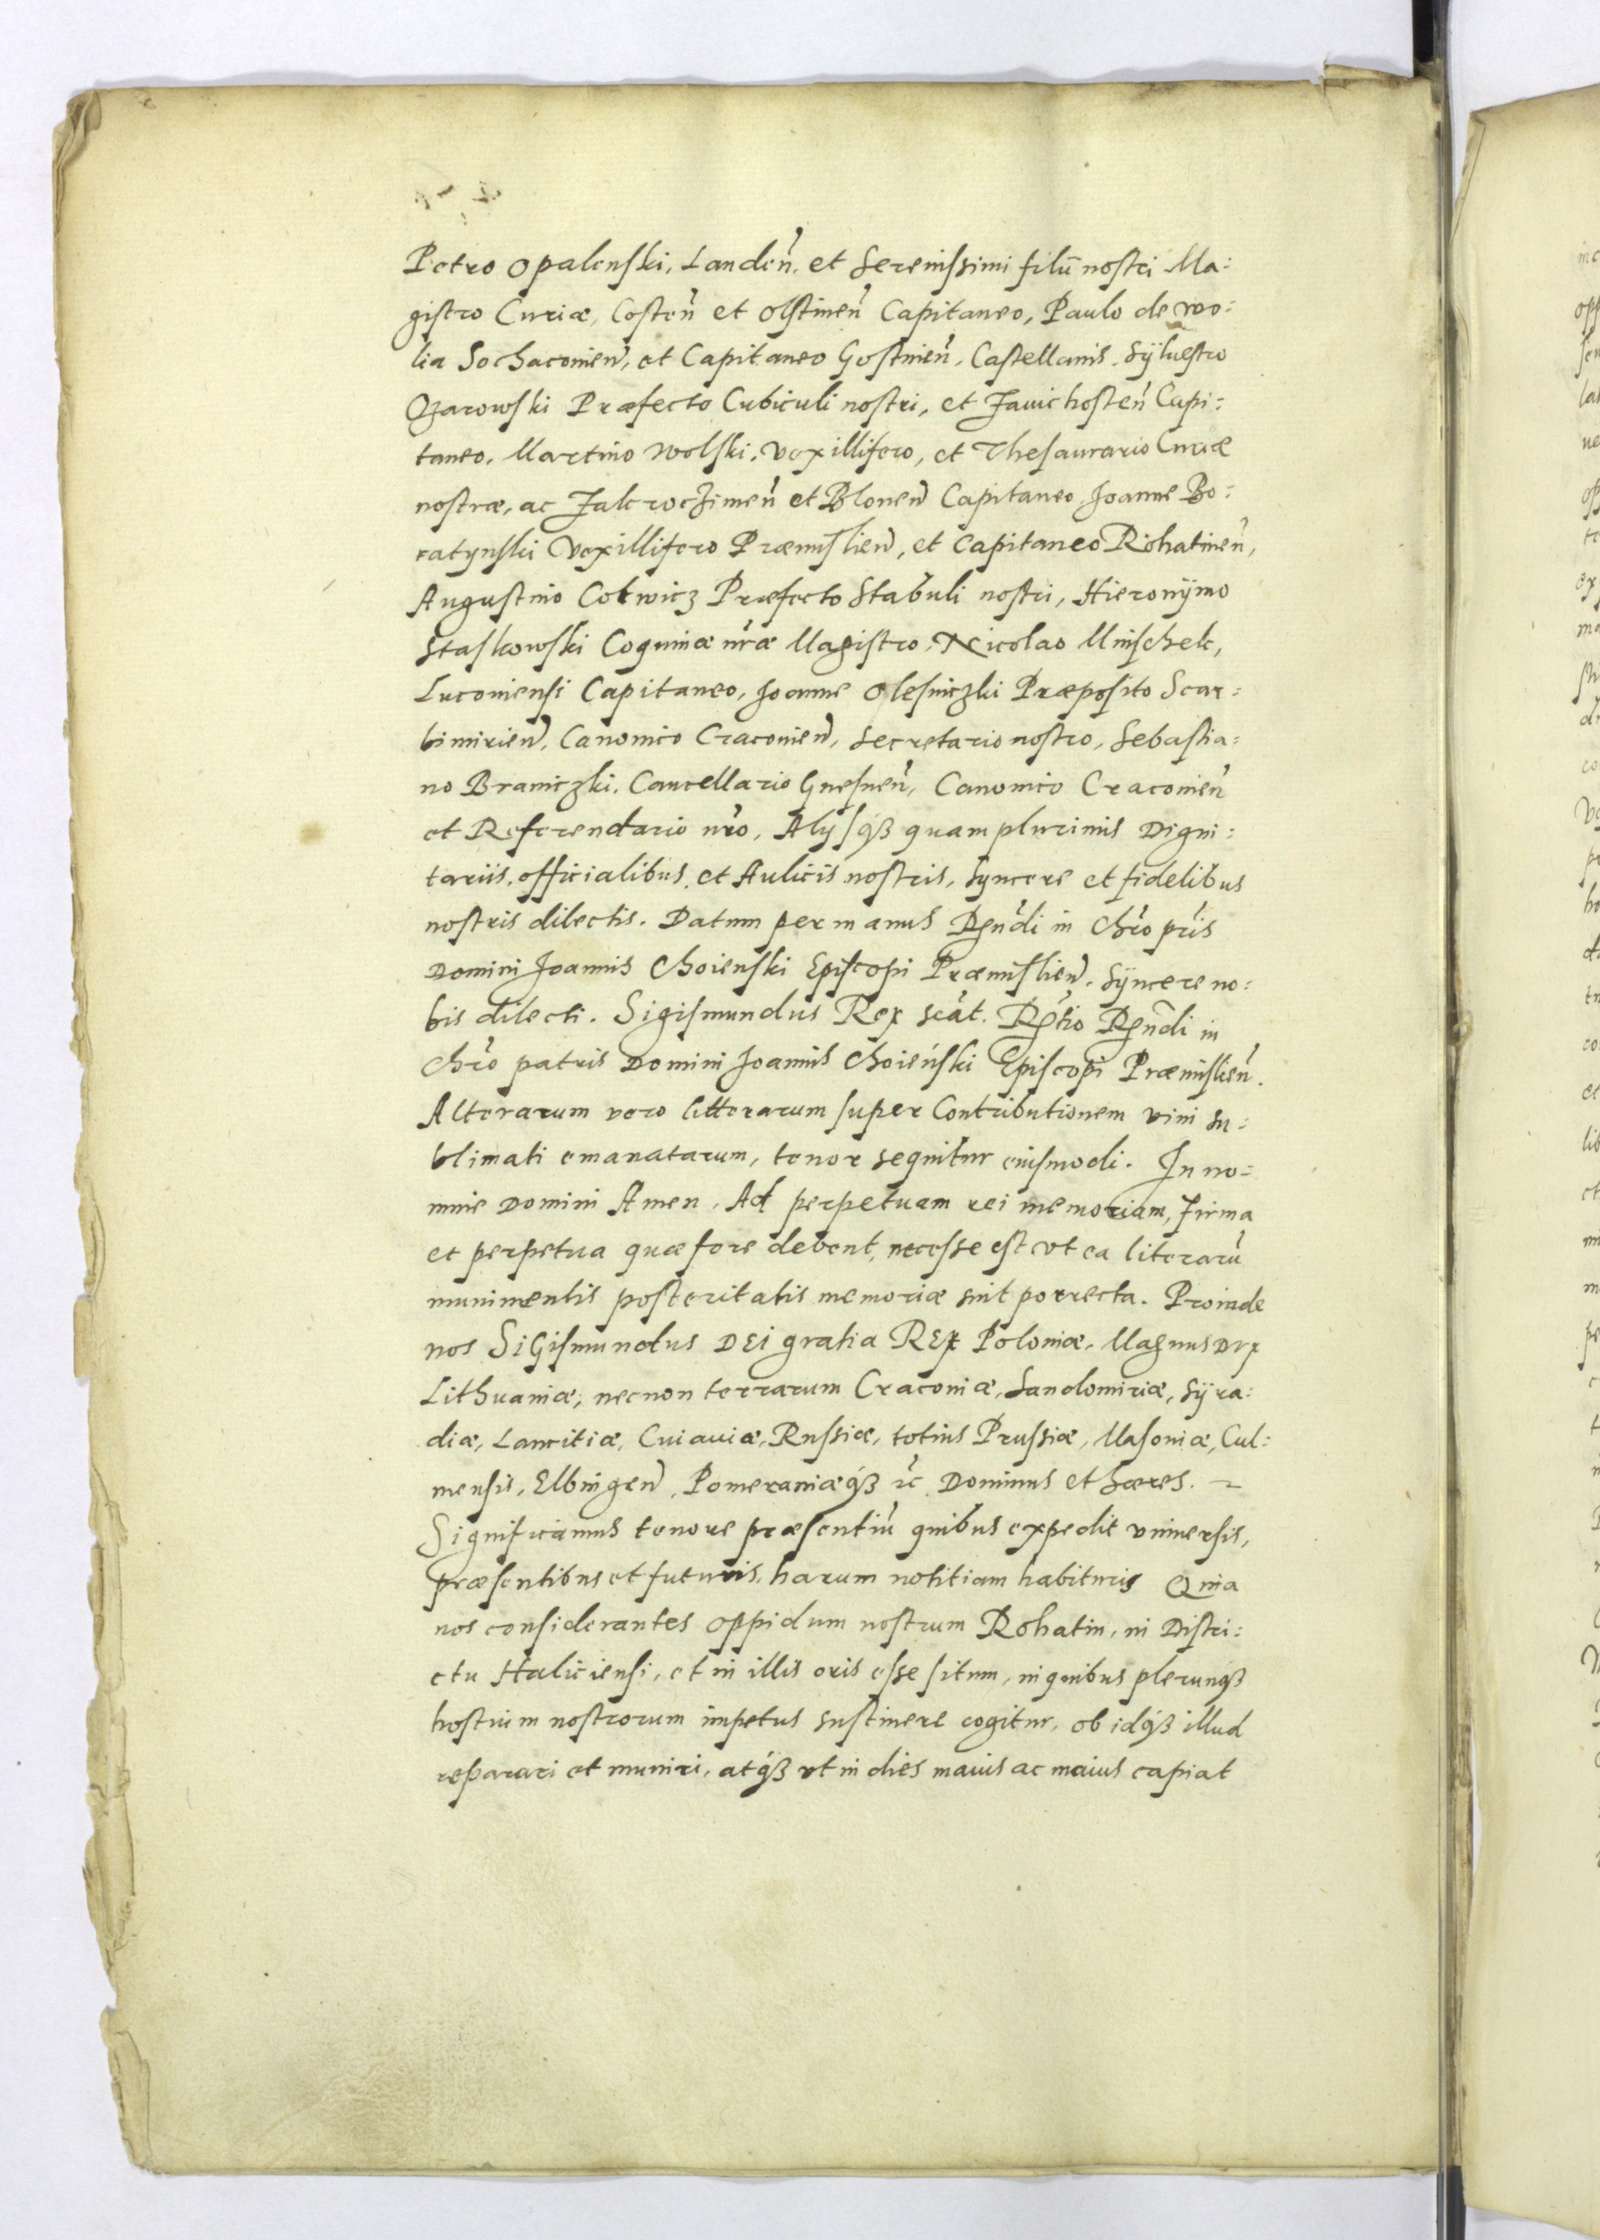 Petro Opalenski, Landen̄. et Serenissimi filii nostri Ma:
gistro Curiæ, Costen̄ et Olstinen̄ Capitaneo, Paulo de Wo:
lia Sochaconien̄, et Capitaneo Gostinien̄. Castellanis. Sÿluestro
Ozarowski Præfecto Cubiculi nostri, et Zauichosten̄ Capi:
taneo. Martino Wolski. Vexillifero, et Thesaurario Curiæ
nostræ, ac Zakroczimen̄ et Blonen̄ Capitaneo Joanne Bo:
ratynski Vexillifero Præmislien̄, et Capitaneo Rohatinen̄,
Augustino Cotwicz Præfecto Stabuli nostri, Hieronÿmo
Staskowski Coquinæ nr̄æ Magistro, Nicolao Mnischek,
Luconiensi Capitaneo, Joanne Olesniczki Præposito Scar:
bimirien̄, Canonico Craconien̄, Secretario nostro, Sebastia:
no Braniczki. Cancellario Gnesnen̄, Canonico Craconien̄
et Referendario nr̄o, Alysq́ȝ quam plurimis Digni:
tariis. officialibus, et Aulicis nostris, Syncere et fidelibus
nostris dilectis. Datum per manus Rn̄di in Chr̄o pr̄is
Domini Joannis Choienski Episcopi Præmislien̄. Sÿncere no:
bis dilecti. Sigismundus Rex sc̄at. Rl̄tio Rn̄di in
Chr̄o patris Domini Joannis Choieński Episcopi Præmislien̄.
Alterarum vero litterarum super Contributionem vini su:
blimati emanatarum, tenor sequitur eiusmodi. In no:
mine Domini Amen. Ad perpetuam rei memoriam, Firma
et perpetua quæ fore debent, necesse est vt ea literarū
munimentis posteritatis memoriæ sint porrecta. Proinde
nos SiGismundus DEi gratia REX Poloniæ. Magnus Dvx
Lithuaniæ, necnon terrarum Craconiæ, Sandomiriæ, Sÿra:
diæ, Lancitiæ, Cuiauiæ, Russiæ, totius Prussiæ, Masoniæ, Cul:
mensis, Elbingen̄, Pomeraniæq́ȝ &c Dominus et hæres.
Significamus tenore præsentiū quibus expedit vniuersis,
præsentibus et futuris, harum notitiam habituris Quia
nos considerantes Oppidum nostrum Rohatin, in Distri:
ctu Haliciensi, et in illis oris esse situm, in quibus plerunq́ȝ
hostium nostrorum impetus sustinere cogitur, ob idq́ȝ illud
reparari et muniri, atq́ȝ vt in dies maius ac maius capiat